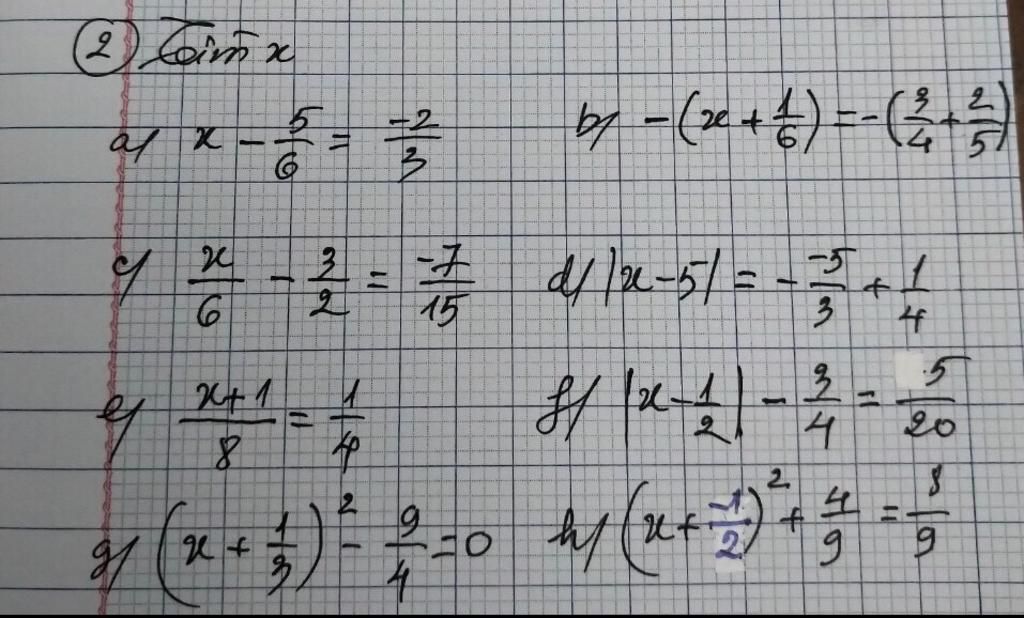 ② Tìm x
a) x - 5/6 = -2/3 b) -(x + 1/6) = -(3/4 + 2/5)
c) x/6 - 3/2 = -7/15 d) |x - 5| = - -5/3 + 1/4
e) x+1/8 = 1/4 f) |x - 1/2| - 3/4 = 5/20
g) (x + 1/3)² - 9/4 = 0 h) (x + -1/2)² + 4/9 = 8/9